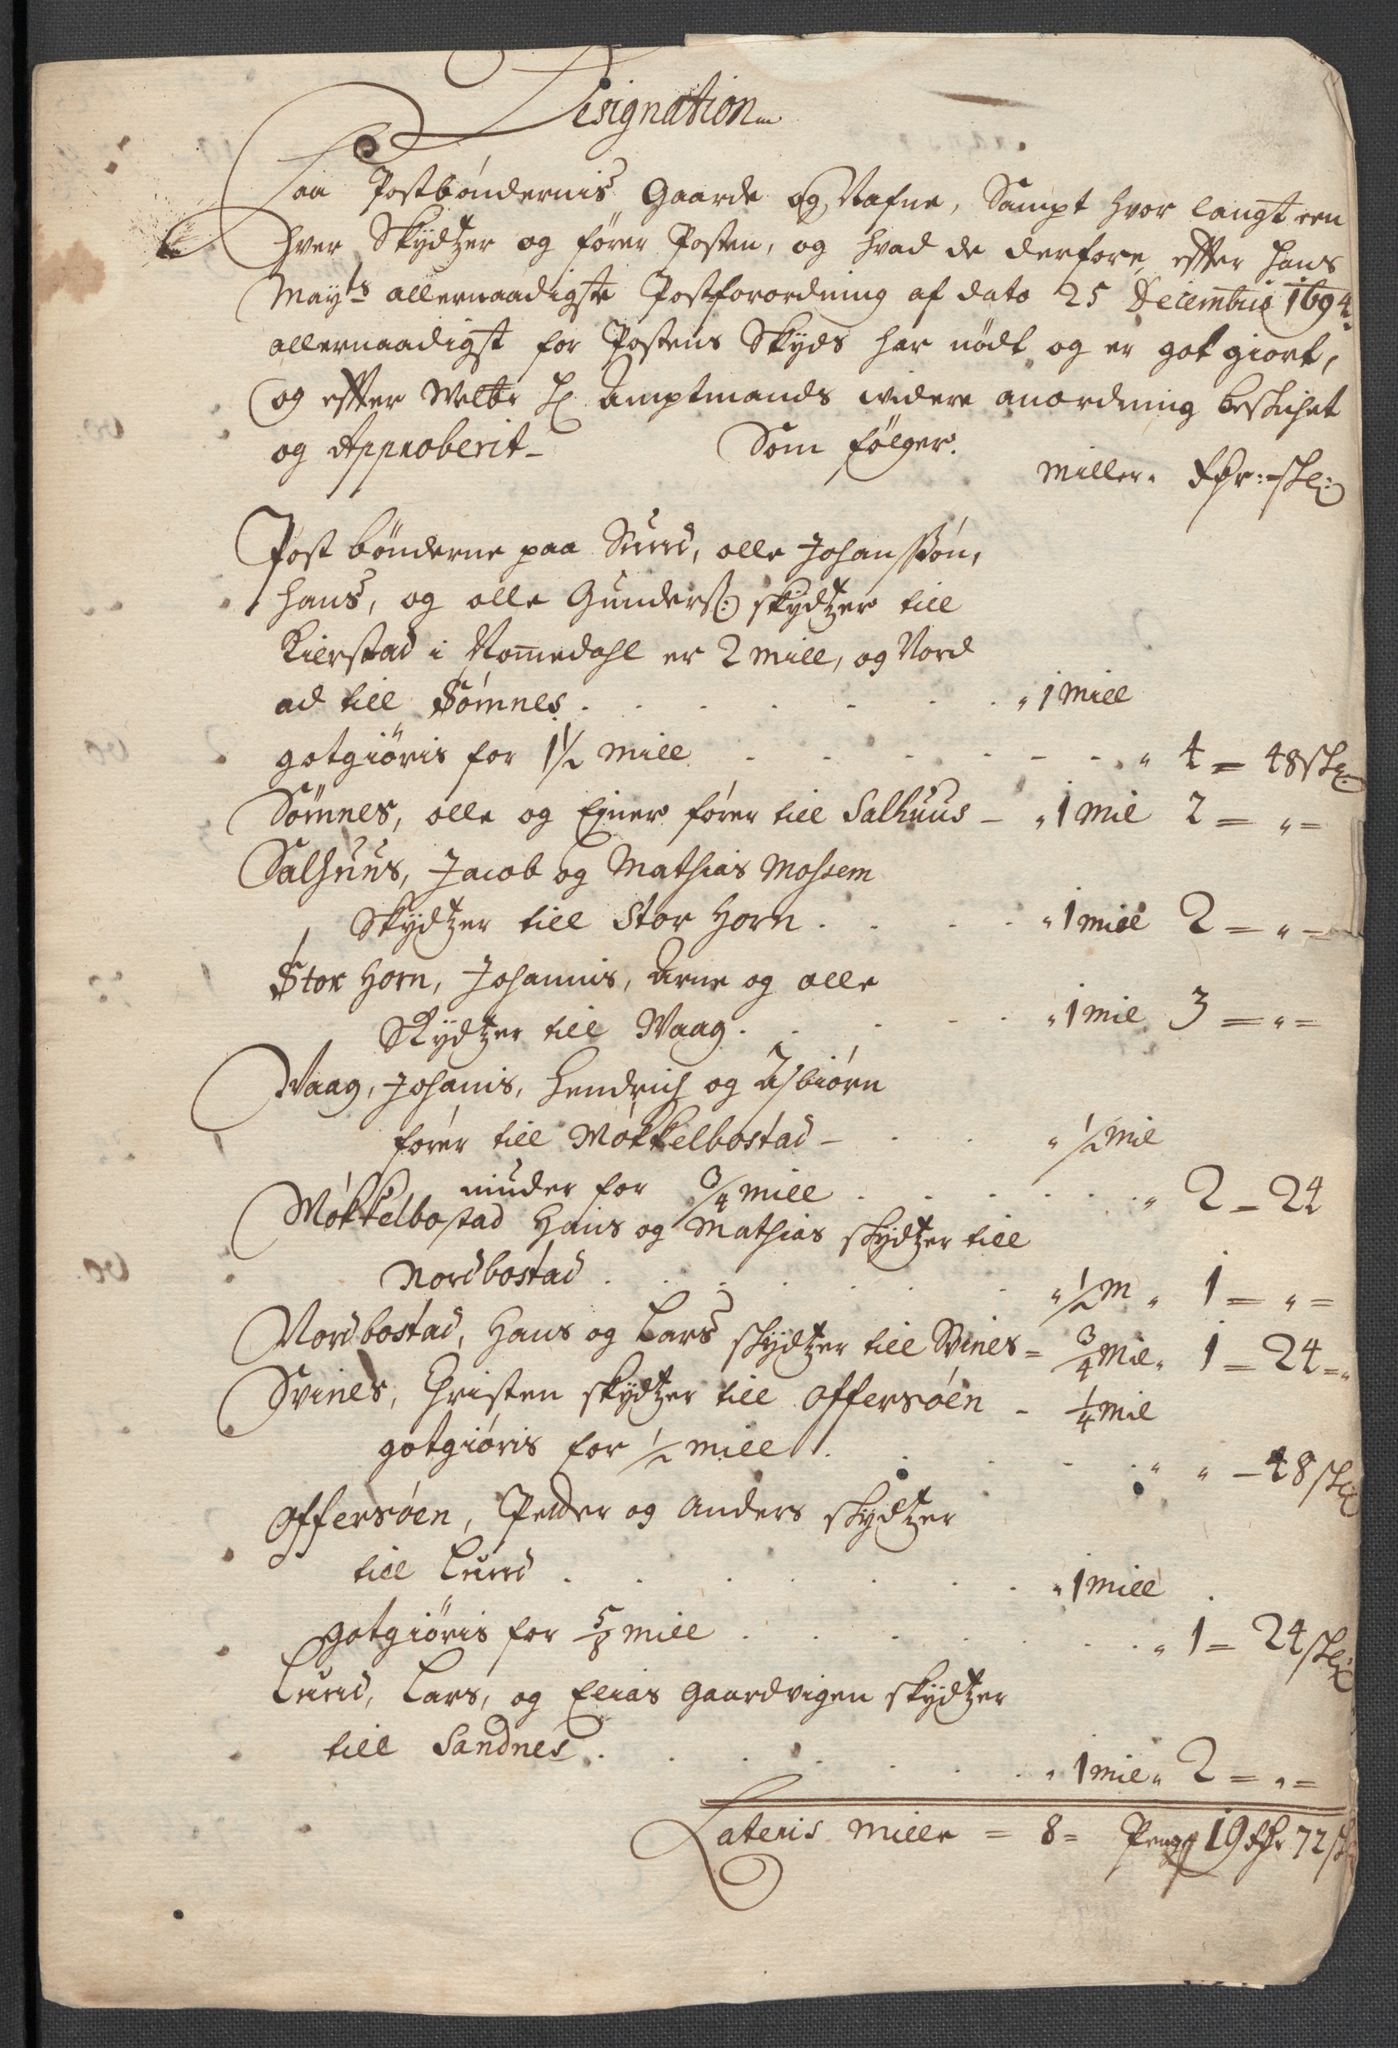 Designation
Paa Postböndernis Gaarde og Nafne, Sampt hvor langt een
hver Skydtzer og förer Posten, og hvad de derfore, effter hans
Mayts allernaadigste Postforordning af dato 25 Decembris 1694
allernaadigst for Postens Skyds har nödt og er got giort,
og effter Welbr H Amptmands widere anordning beskichet
og Approberit - Som fölger.
Miller. Rdr: - sk:
Post bönderne paa Suud, olle Johanssön,
Hans, og olle Gunders: skydtzer till
Kierstad i Nommedahl er 2 mill, og Nord
ad till Sömnes . . . . . . . " 1 Mill
gotgiöris for 1½ mill . . . . - - . " 4 = 48 sk:
Sömnes, olle og Einer förer till Salhuus - " 1 Mil 2 = " =
Salhuus, Jacob og Mathias Mossem
Skydtzer till Stor Horn . . . . " 1 mill 2 = " =
Stor Horn, Johannis, Arne og olle
Skydtzer till Waag . . . . . " 1 mil 3 = " =
Waag, Johanis, Hendrich og Asbiörn
förer till Mökkelbostad - . . . " ½ Mil
niuder for ¾ mill . . . . . . " 2 - 24
Mökkelbostad Hans og Mathias skydtzer till
Nordbostad . . . . . . . " ½ M " 1 = " =
Nordbostad, Hans og Lars skydtzer till Svines = ¾ Mil " 1 = 24 = "
Svines, Christen skydtzer till Offersöen - ¼ Mil
gotgiöris for ½ mill . . . . . " " - 48 sk
Offersöen, Peder og Anders skydtzer
till Lund . . . . . . . " 1 mill .
gotgiöris for 5/8 mill . . . . . . " 1 = 24 sk:
Lund, Lars, og Elias Gaardvigen skydtzer
till Sandnes . . . . . . " 1 mil " 2 = " =
Lateris Mille = 8 = Peng 19 Rdr 72 sk